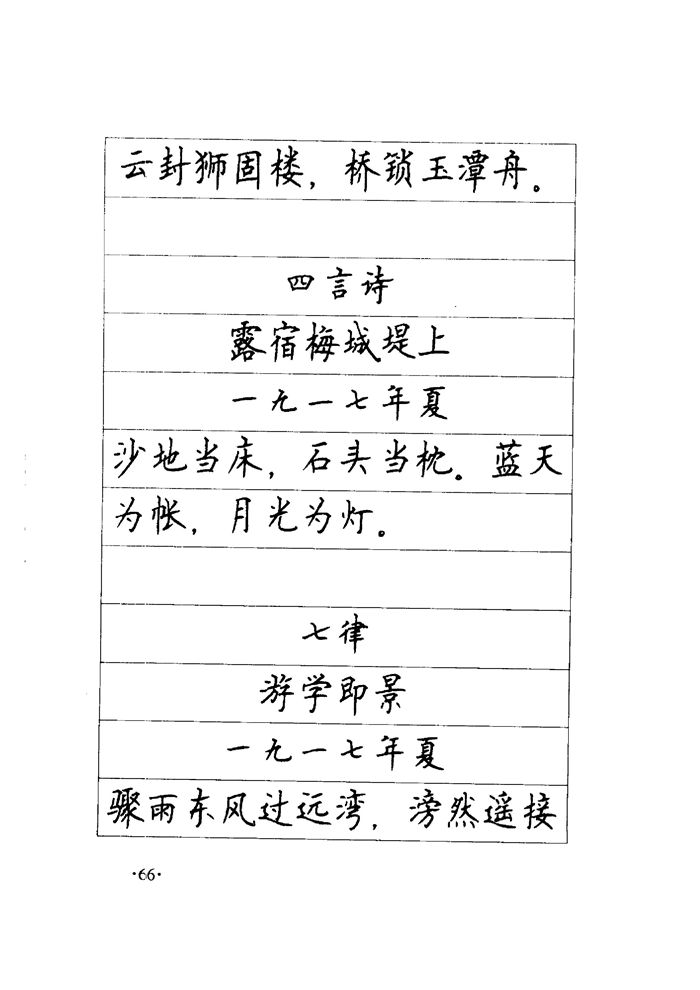 云封狮固楼，桥锁玉潭舟。
四言诗
露宿梅城堤上
一九一七年夏
沙地当床，石头当枕。蓝天
为帐，月光为灯。
七律
游学即景
一九一七年夏
骤雨东风过远湾，滂然遥接
·66·